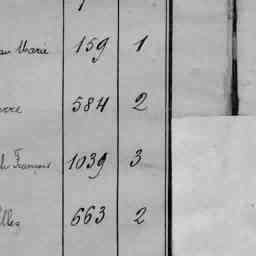 Marie 159 1
584 2
François 1039 3
663 2